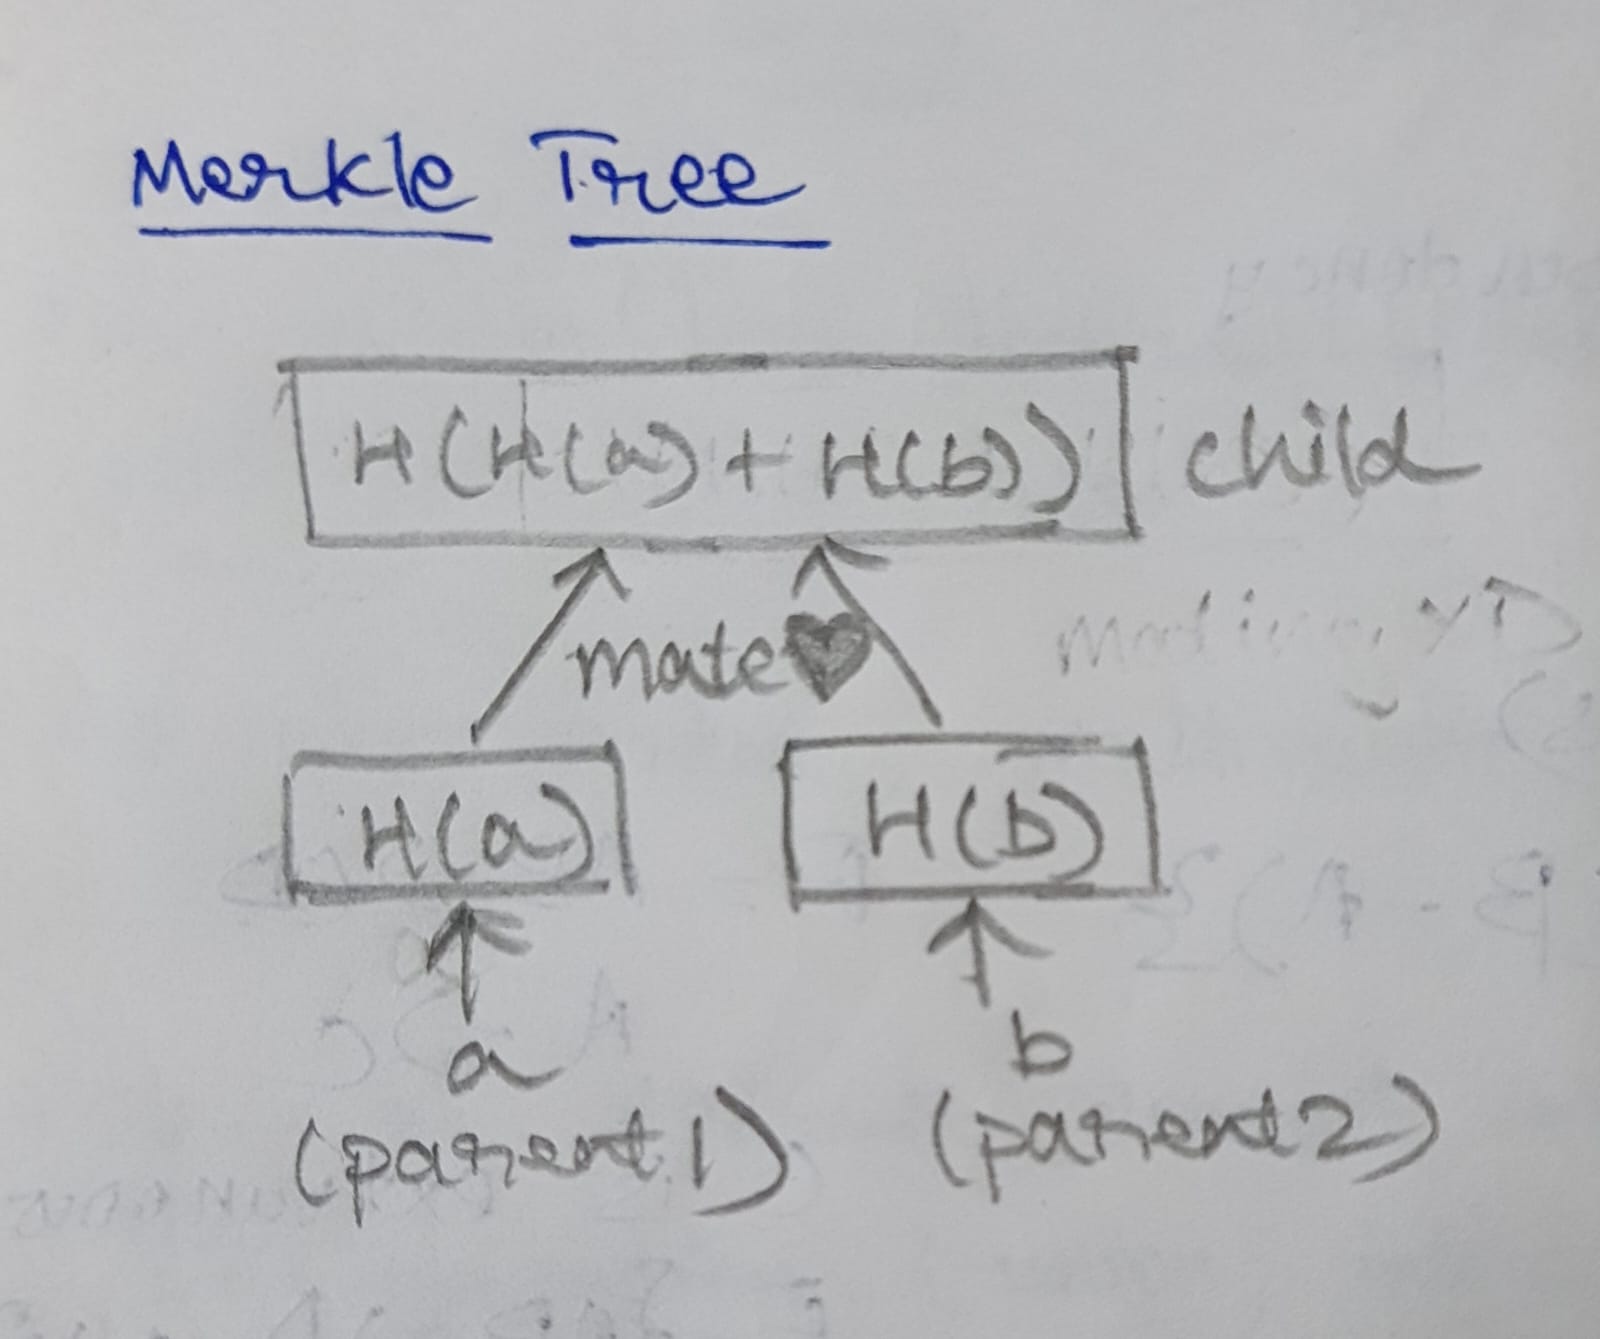 Merkle Tree
H(H(a) + H(b)) child
mate
H(a) H(b)
a b
(parent 1) (parent 2)